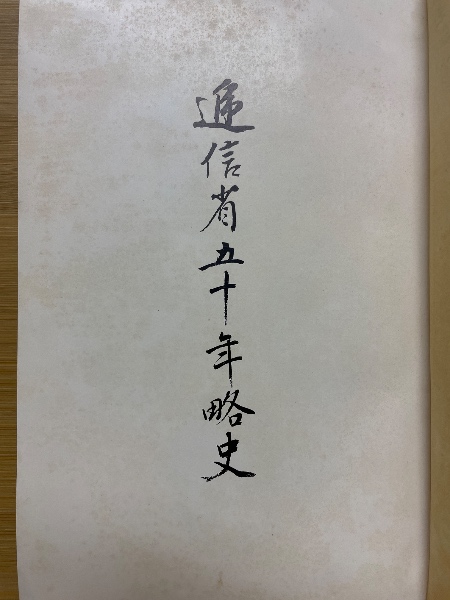 逓信省五十年略史